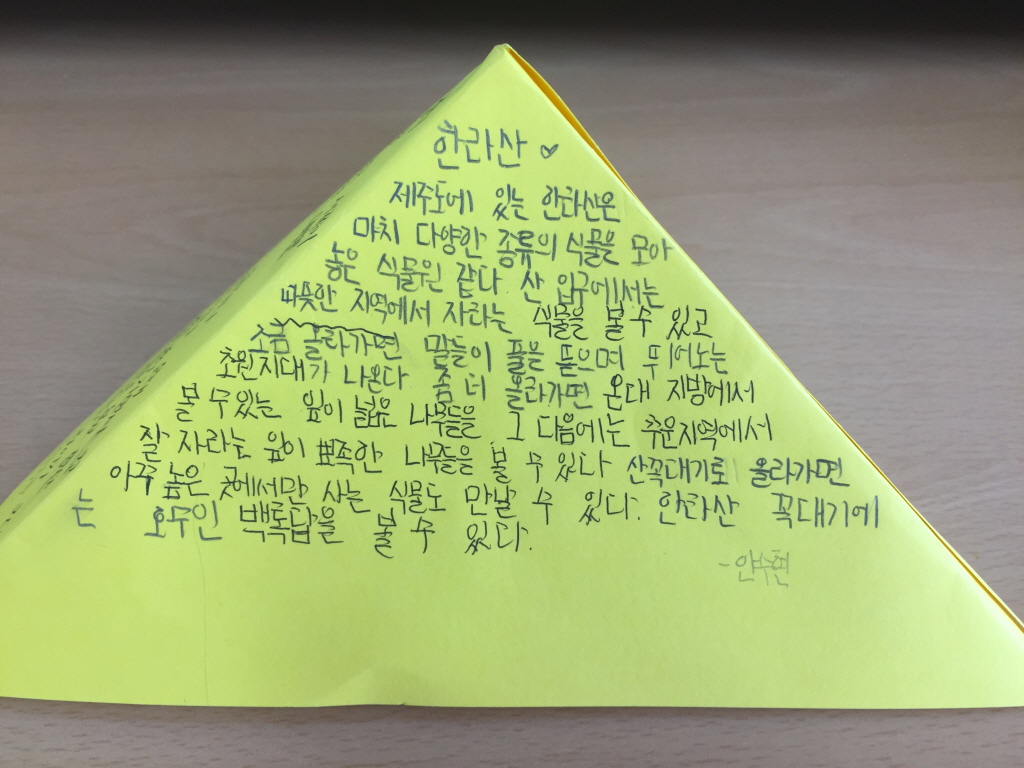 한라산 ♡
제주도에 있는 한라산은
마치 다양한 종류의 식물을 모아
놓은 식물원 같다 산 입구에서는
따뜻한 지역에서 자라는 식물을 볼 수 있고
조금 올라가면 말들이 풀을 뜯으며 뛰어노는
초원지대가 나온다 좀 더 올라가면 온대 지방에서
볼 수 있는 잎이 넓은 나무들을 그 다음에는 추운지역에서
잘 자라는 잎이 뾰족한 나무들을 볼 수 있다 산꼭대기로 올라가면
아주 높은 곳에서만 사는 식물도 만날 수 있다. 한라산 꼭대기에
는 호수인 백록담을 볼 수 있다.
-안수현